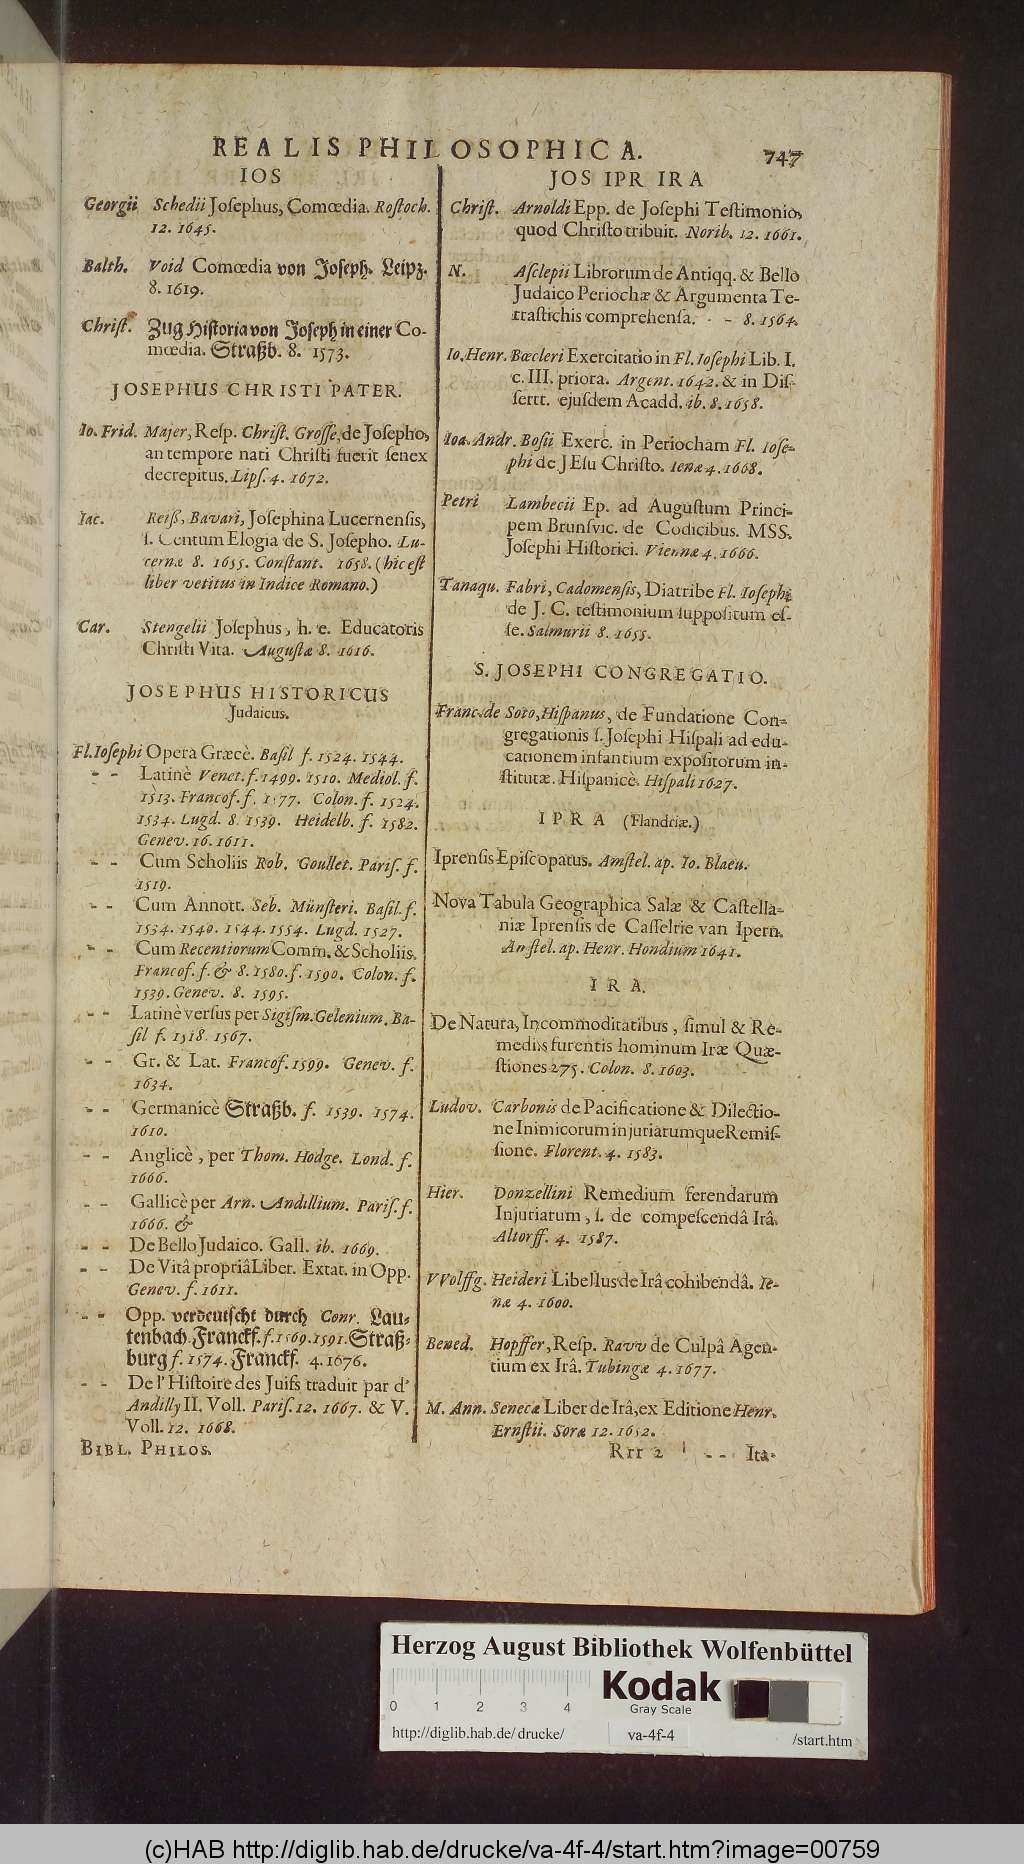 REALIS PHILOSOPHICA. 747
IOS
Georgii Schedii Josephus, Comœdia. Rostoch.
12. 1645.
Balth. Void Comœdia von Joseph. Leipz.
8. 1619.
Christ. Zug Historia von Joseph in einer Co-
mœdia. Straßb. 8. 1573.
JOSEPHUS CHRISTI PATER.
Io. Frid. Majer, Resp. Christ. Grosse, de Josepho,
an tempore nati Christi fuerit senex
decrepitus. Lips. 4. 1672.
Iac. Reiß, Bavari, Josephina Lucernensis,
s. Centum Elogia de S. Josepho. Lu-
cernæ 8. 1655. Constant. 1658. (hic est
liber vetitus in Indice Romano.)
Car. Stengelii Josephus, h. e. Educatoris
Christi Vita. Augustæ 8. 1616.
JOSEPHUS HISTORICUS
Judaicus.
Fl. Iosephi Opera Græcè. Basil f. 1524. 1544.
- - Latinè Venet. f. 1499. 1510. Mediol. f.
1513. Francof. f. 1577. Colon. f. 1524.
1534. Lugd. 8. 1539. Heidelb. f. 1582.
Genev. 16. 1611.
- - Cum Scholiis Rob. Goullet. Paris. f.
1519.
- - Cum Annott. Seb. Münsteri. Basil. f.
1534. 1540. 1544. 1554. Lugd. 1527.
- - Cum Recentiorum Comm. & Scholiis.
Francof. f. & 8. 1580. f. 1590. Colon. f.
1539. Genev. 8. 1595.
- - Latinè versus per Sigism. Gelenium. Ba-
sil f. 1567.
- - Gr. & Lat. Francof. 1599. Genev. f.
1634.
- - Germanicè Straßb. f. 1539. 1574.
1610.
- - Anglicè, per Thom. Hodge. Lond. f.
1666.
- - Gallicè per Arn. Andillium. Paris. f.
1666. &
- - De Bello Judaico. Gall. ib. 1669.
- - De Vitâ propriâ Liber. Extat. in Opp.
Genev. f. 1611.
- - Opp. verdeutscht durch Conr. Lau-
tenbach. Franckf. f. 1569. 1591. Straß-
burg f. 1574. Franckf. 4. 1676.
- - De l' Histoire des Juifs traduit par d'
Andilly II. Voll. Paris. 12. 1667. & V.
Voll. 12. 1668.
BIBL. PHILOS.
JOS IPR IRA
Christ. Arnoldi Epp. de Josephi Testimonio,
quod Christo tribuit. Norib. 12. 1661.
N. Asclepii Librorum de Antiqq. & Bello
Judaico Periochæ & Argumenta Te-
trastichis comprehensa. - - 8. 1564.
Io. Henr. Bœcleri Exercitatio in Fl. Iosephi Lib. I.
c. III. priora. Argent. 1642. & in Dis-
sertt. ejusdem Acadd. ib. 8. 1658.
Ioa. Andr. Bosii Exerc. in Periocham Fl. Iose-
phi de JEsu Christo. Ienæ 4. 1668.
Petri Lambecii Ep. ad Augustum Princi-
pem Brunsvic. de Codicibus. MSS.
Josephi Historici. Viennæ 4. 1666.
Tanaqu. Fabri, Cadomensis, Diatribe Fl. Iosephi
de J. C. testimonium suppositum es-
se. Salmurii 8. 1655.
S. JOSEPHI CONGREGATIO.
Franc. de Soto, Hispanus, de Fundatione Con-
gregationis s. Josephi Hispali ad edu-
cationem infantium expositorum in-
stitutæ. Hispanicè. Hispali 1627.
IPRA (Flandriæ.)
Iprensis Episcopatus. Amstel. ap. Io. Blaeu.
Nova Tabula Geographica Salæ & Castella-
niæ Iprensis de Casselrie van Ipern.
Amstel. ap. Henr. Hondium 1641.
IRA.
De Natura, Incommoditatibus, simul & Re-
mediis furentis hominum Iræ Quæ-
stiones 275. Colon. 8. 1603.
Ludov. Carbonis de Pacificatione & Dilectio-
ne Inimicorum injuriarumque Remis-
sione. Florent. 4. 1583.
Hier. Donzellini Remedium ferendarum
Injuriarum, s. de compescendâ Irâ.
Altorff. 4. 1587.
VVolffg. Heideri Libellus de Irâ cohibendâ. Ie-
næ 4. 1600.
Bened. Hopffer, Resp. Ravv de Culpâ Agen-
tium ex Irâ. Tubingæ 4. 1677.
M. Ann. Senecæ Liber de Irâ, ex Editione Henr.
Ernstii. Soræ 12. 1652.
Rrr 2 - - Ira-
Herzog August Bibliothek Wolfenbüttel
0 1 2 3 4
Kodak
Gray Scale
http://diglib.hab.de/drucke/ va-4f-4 /start.htm
(c)HAB http://diglib.hab.de/drucke/va-4f-4/start.htm?image=00759